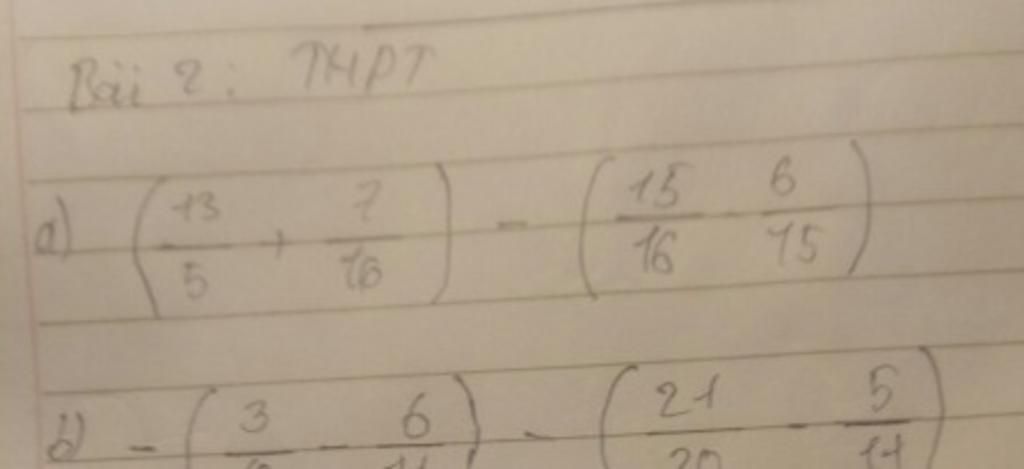 Bài 2: THPT
a) (13/5 + 7/16) - (15/16 - 6/15)
b) - (3/ - 6/11) - (21/20 - 5/11)